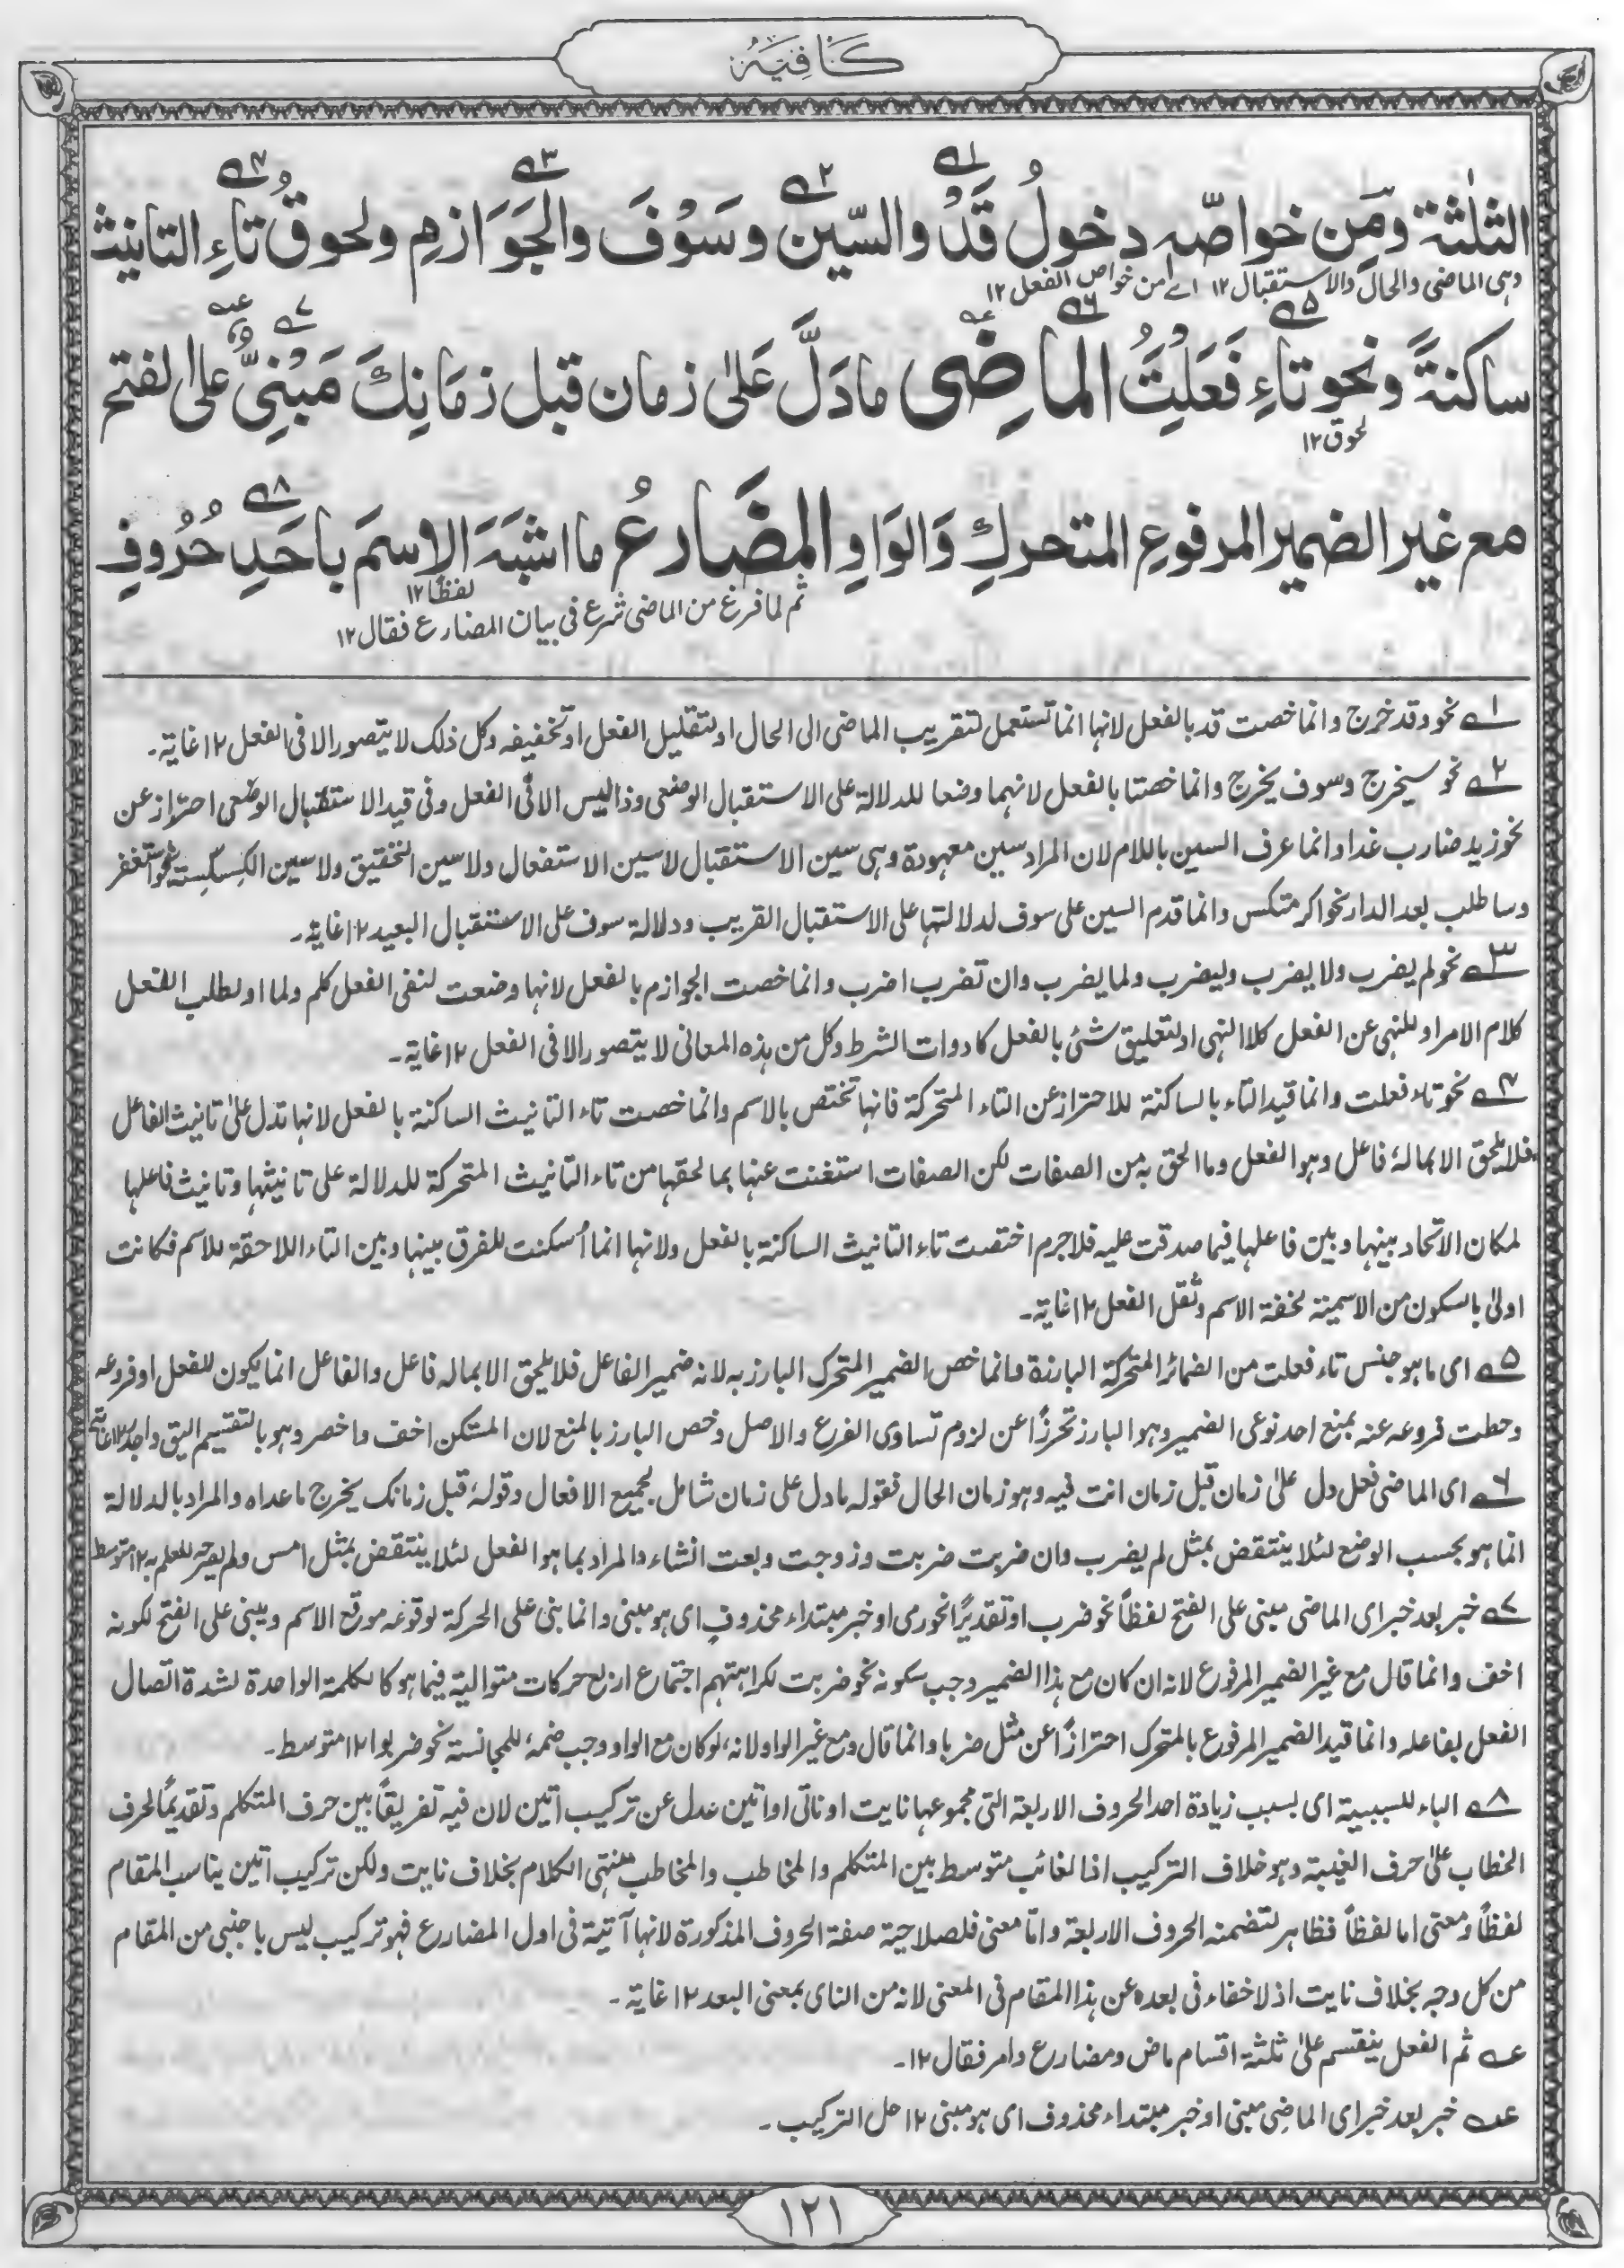 كَافِيَةٌ
الثلٰثة ومن خواصّه دخولُ قَدْ والسّين وسَوْفَ والجَوَازمِ ولحوقُ تاءِ التانيث
وہی الماضی والحال والاستقبال ۱۲ اے من خواص الفعل ۱۲
ساكنةً ونحو تاءِ فَعَلْتُ الماضِی مادَلَّ عَلىٰ زمان قبل زمَانِكَ مَبْنِیٌّ على الفتح
لحوق ۱۲
مع غير الضمير المرفوعِ المتحركِ وَالوَاوِ المضَارعُ ما اشبَهَ الاِسمَ باَحَدِ حُرُوفِ
لفظًا ۱۲
ثم لما فرغ من الماضی شرع فی بیان المضارع فقال ۱۲
۱ نحو قد خرج وانما خصت قد بالفعل لانہا انما تستعمل لتقریب الماضی الی الحال او لتقلیل الفعل او تخفیفہ وکل ذلک لا یتصور الا فی الفعل ۱۲ غایۃ۔
۲ نحو سیخرج وسوف یخرج وانما خصتا بالفعل لانہما وضعا للدلالۃ علی الاستقبال الوضعی وذا لیس الا فی الفعل وفی قید الاستقبال الوضعی احتراز عن
نحو زید ضارب غدا وانما عرف السین باللام لان المراد سین معہودۃ وہی سین الاستقبال لا سین الاستفعال ولا سین التحقیق ولا سین الکسکسۃ نحو استغفر
وساطلب بعد الدار نحو اکرمتکس وانما قدم السین علی سوف لدلالتہا علی الاستقبال القریب ودلالۃ سوف علی الاستقبال البعید ۱۲ غایۃ۔
۳ نحو لم یضرب ولا یضرب ولیضرب ولما یضرب وان تضرب اضرب وانما خصت الجوازم بالفعل لانہا وضعت لنفی الفعل کلم ولما او لطلب الفعل
کلام الامر او للنہی عن الفعل کلا النہی او لتعلیق شئ بالفعل کادوات الشرط وکل من ہذہ المعانی لا یتصور الا فی الفعل ۱۲ غایۃ۔
۴ نحو تاء فعلت وانما قید التاء بالساکنۃ للاحتراز عن التاء المتحرکۃ فانہا تختص بالاسم وانما خصت تاء التانیث الساکنۃ بالفعل لانہا تدل علیٰ تانیث الفاعل
فلا یلحق الا بما لہ فاعل وہو الفعل وما الحق بہ من الصفات لکن الصفات استغنت عنہا بما لحقہا من تاء التانیث المتحرکۃ للدلالۃ علی تانیثہا وتانیث فاعلہا
لمکان الاتحاد بینہا وبین فاعلہا فیما صدقت علیہ فلا جرم اختصت تاء التانیث الساکنۃ بالفعل ولانہا انما اُسکنت للفرق بینہا وبین التاء اللاحقۃ للاسم فکانت
اولیٰ بالسکون من الاسمیۃ لخفۃ الاسم وثقل الفعل ۱۲ غایۃ۔
۵ ای ما ہو جنس تاء فعلت من الضمائر المتحرکۃ البارزۃ وانما خص الضمیر المتحرک البارز بہ لانہ ضمیر الفاعل فلا یلحق الا بما لہ فاعل والفاعل انما یکون للفعل او فروعہ
وحطت فروعہ عنہ بمنع احد نوعی الضمیر وہو البارز تحرزًا عن لزوم تساوی الفرع والاصل وخص البارز بالمنع لان المستکن اخف واخصر وہو بالتقسیم الیق واجدر ۱۲ غایۃ
۶ ای الماضی فعل دل علیٰ زمان قبل زمان انت فیہ وہو زمان الحال فقولہ ما دل علی زمان شامل لجمیع الافعال وقولہ قبل زمانک یخرج ما عداہ والمراد بالدلالۃ
انما ہو بحسب الوضع لئلا ینتقض بمثل لم یضرب وان ضربت ضربت وزوجت وبعت انشاء والمراد بما ہو الفعل لئلا ینتقض بمثل امس ولم یصرح للعلم بہ ۱۲ متوسط
۷ خبر بعد خبر ای الماضی مبنی علی الفتح لفظاً نحو ضرب او تقدیرًا نحو رمی او خبر مبتداء محذوف ای ہو مبنی وانما بنی علی الحرکۃ لوقوعہ موقع الاسم ویبنی علی الفتح لکونہ
اخف وانما قال مع غیر الضمیر المرفوع لانہ ان کان مع ہذا الضمیر وجب سکونہ نحو ضربت لکراہتہم اجتماع اربع حرکات متوالیۃ فیما ہو کالکلمۃ الواحدۃ لشدۃ اتصال
الفعل بفاعلہ وانما قید الضمیر المرفوع بالمتحرک احترازًا عن مثل ضربا وانما قال ومع غیر الواو لانہ لو کان مع الواو وجب ضمہ للمجانسۃ نحو ضربوا ۱۲ متوسط۔
۸ الباء للسببیۃ ای بسبب زیادۃ احد الحروف الاربعۃ التی مجموعہا نایت او ناتی او اتین عدل عن ترکیب اتین لان فیہ تفریقاً بین حرف المتکلم وتقدیمًا لحرف
الخطاب علیٰ حرف الغیبۃ وہو خلاف الترکیب اذا لغائب متوسط بین المتکلم والمخاطب والمخاطب منتہی الکلام بخلاف نایت ولکن ترکیب اتین یناسب المقام
لفظاً ومعنی اما لفظاً فظاہر لتضمنہ الحروف الاربعۃ وامّا معنی فلصلاحیۃ صفۃ الحروف المذکورۃ لانہا آتیۃ فی اول المضارع فہو ترکیب لیس باجنبی من المقام
من کل وجہ بخلاف نایت اذ لا خفاء فی بعدہ عن ہذا المقام فی المعنی لانہ من النای بمعنی البعد ۱۲ غایۃ۔
عہ ثم الفعل ینقسم علیٰ ثلثۃ اقسام ماض ومضارع وامر فقال ۱۲۔
عہ خبر بعد خبر ای الماضی مبنی او خبر مبتداء محذوف ای ہو مبنی ۱۲ حل الترکیب۔
۱۲۱